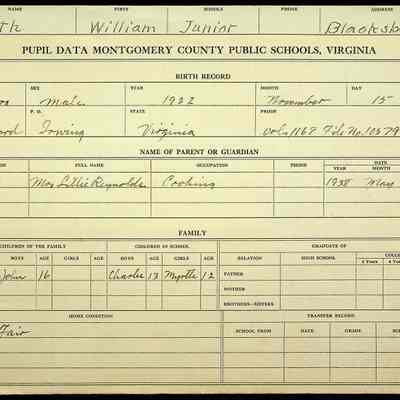 NAME FIRST SCHOOLS PHONE ADDRESS
th William Junior Blacksb
PUPIL DATA MONTGOMERY COUNTY PUBLIC SCHOOLS, VIRGINIA
BIRTH RECORD
SEX YEAR MONTH DAY
male 1922 November 15
P. O. STATE PROOF
ord Irving Virginia vol. 1168 File No. 10379
NAME OF PARENT OR GUARDIAN
FULL NAME OCCUPATION PHONE DATE
YEAR MONTH
Mrs Lillie Reynolds Cooking 1938 May
FAMILY
CHILDREN OF THE FAMILY CHILDREN IN SCHOOL GRADUATE OF
BOYS AGE GIRLS AGE BOYS AGE GIRLS AGE RELATION HIGH SCHOOL COLLE
2 Years 4 Ye
John 16 Charles 13 Myrtle 12 FATHER
MOTHER
BROTHERS—SISTERS
HOME CONDITION TRANSFER RECORD
Fair SCHOOL FROM DATE GRADE SCH